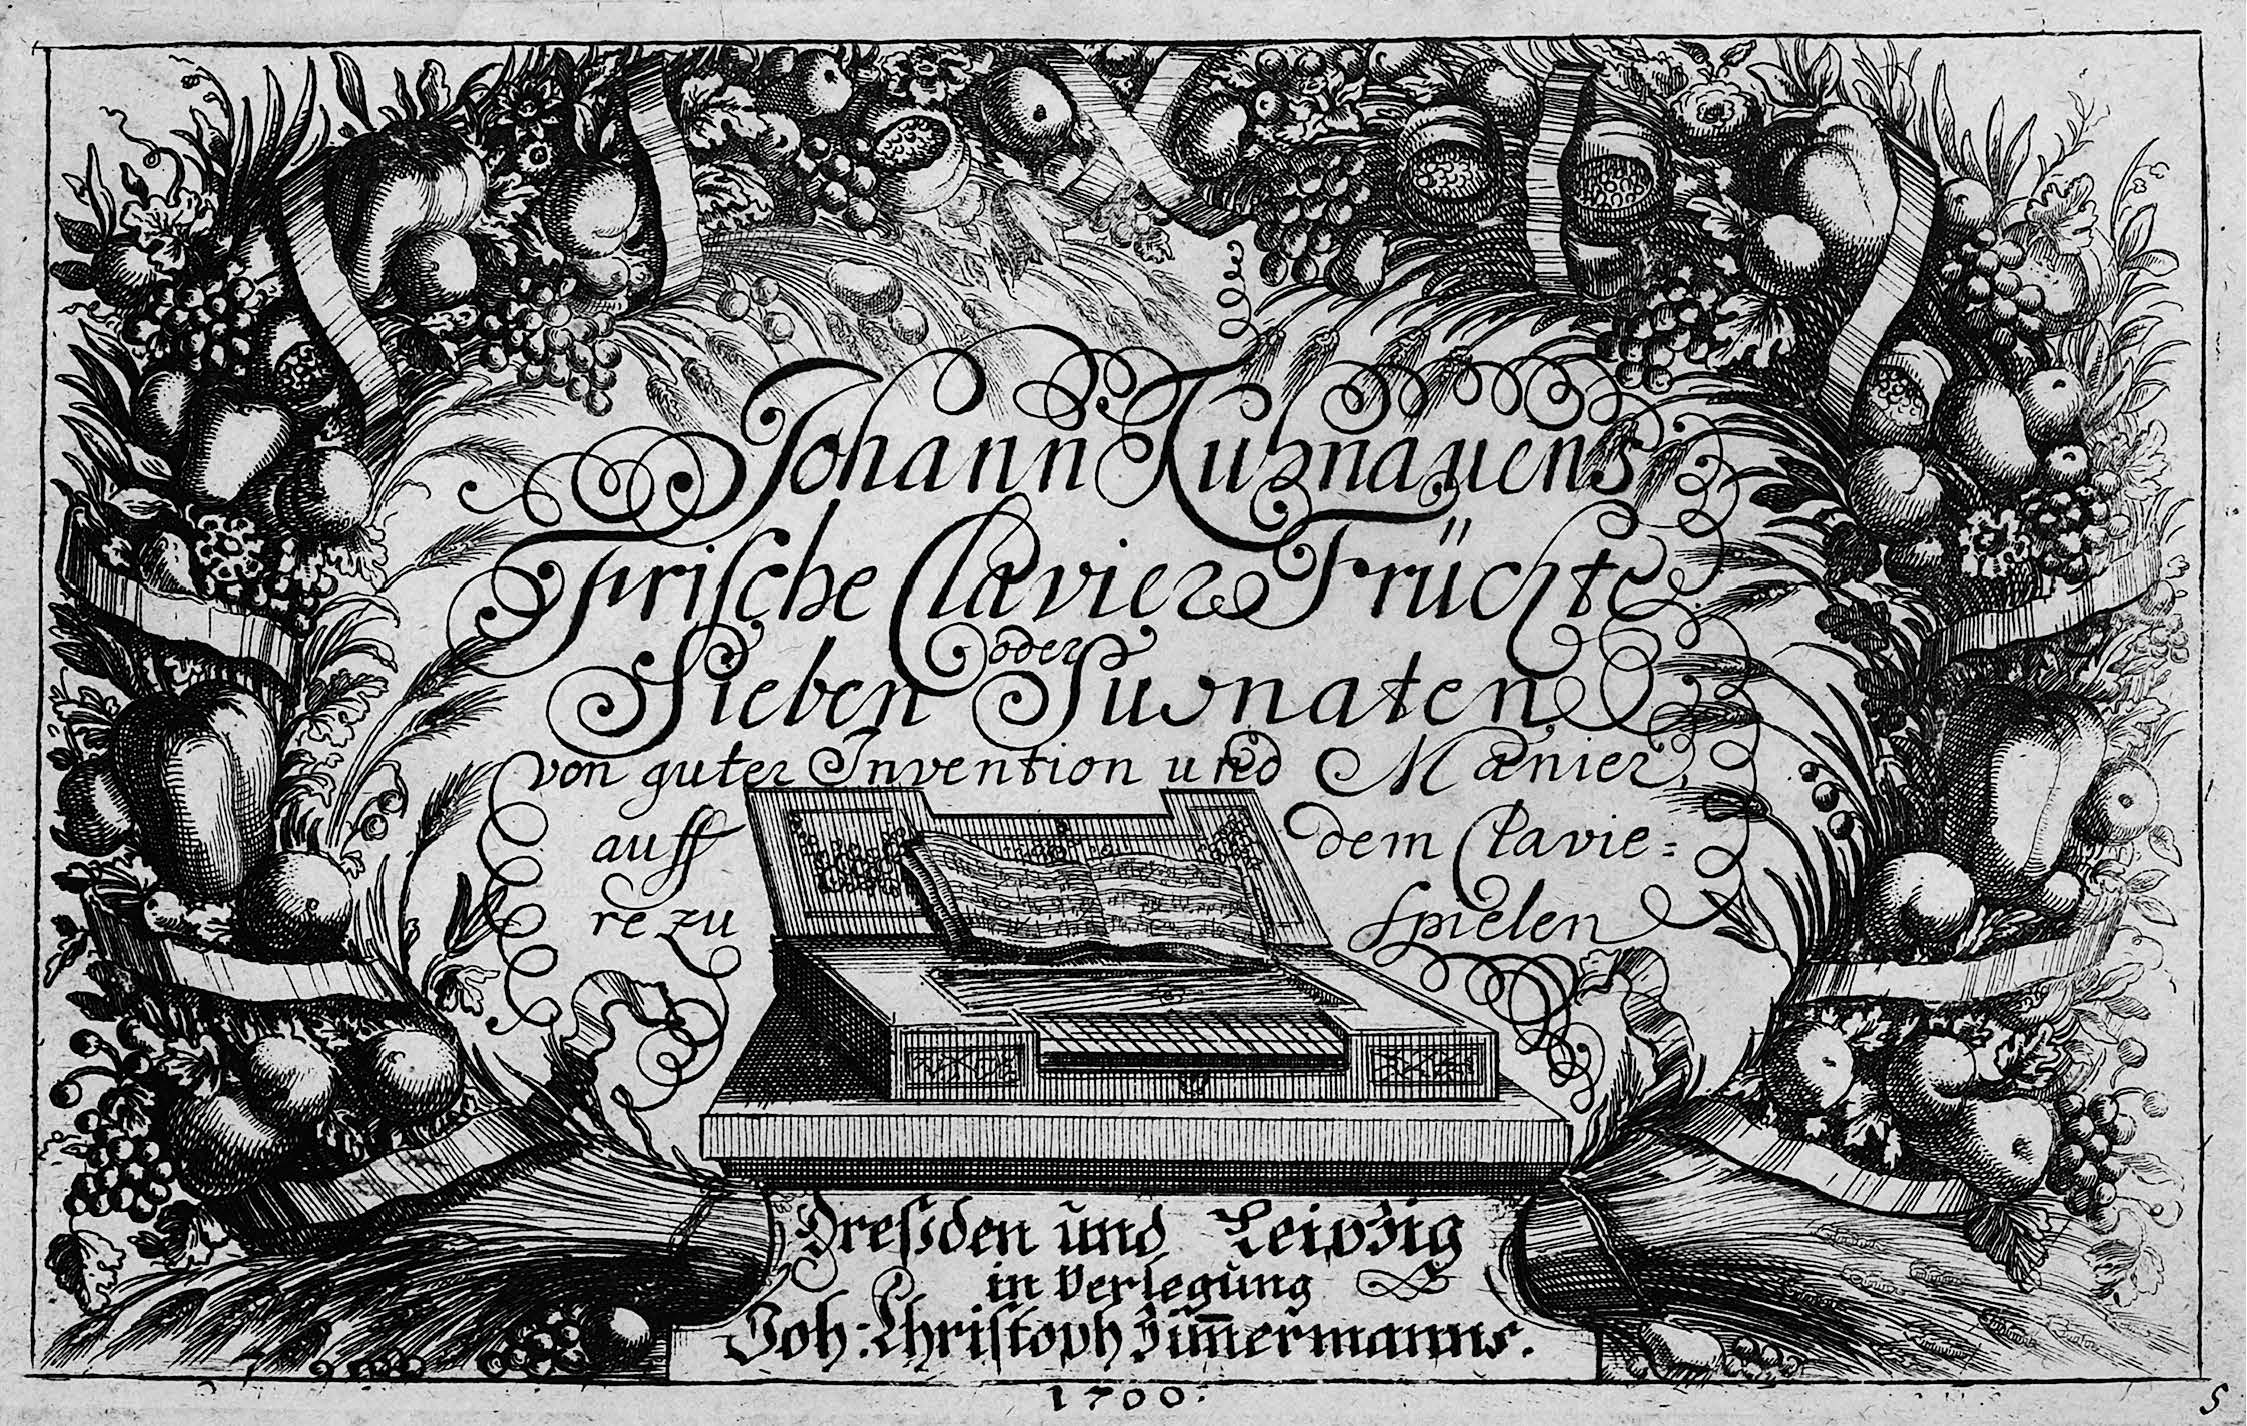 Johann Kuhnauens
Frische Clavier Früchte
oder
Sieben Suonaten
von guter Invention und Manier
auff dem Clavie=
re zu spielen
Dreſzden und Leipzig
in Verlegung
Joh: Chriſtoph Zim̅ermanns.
1700.
S